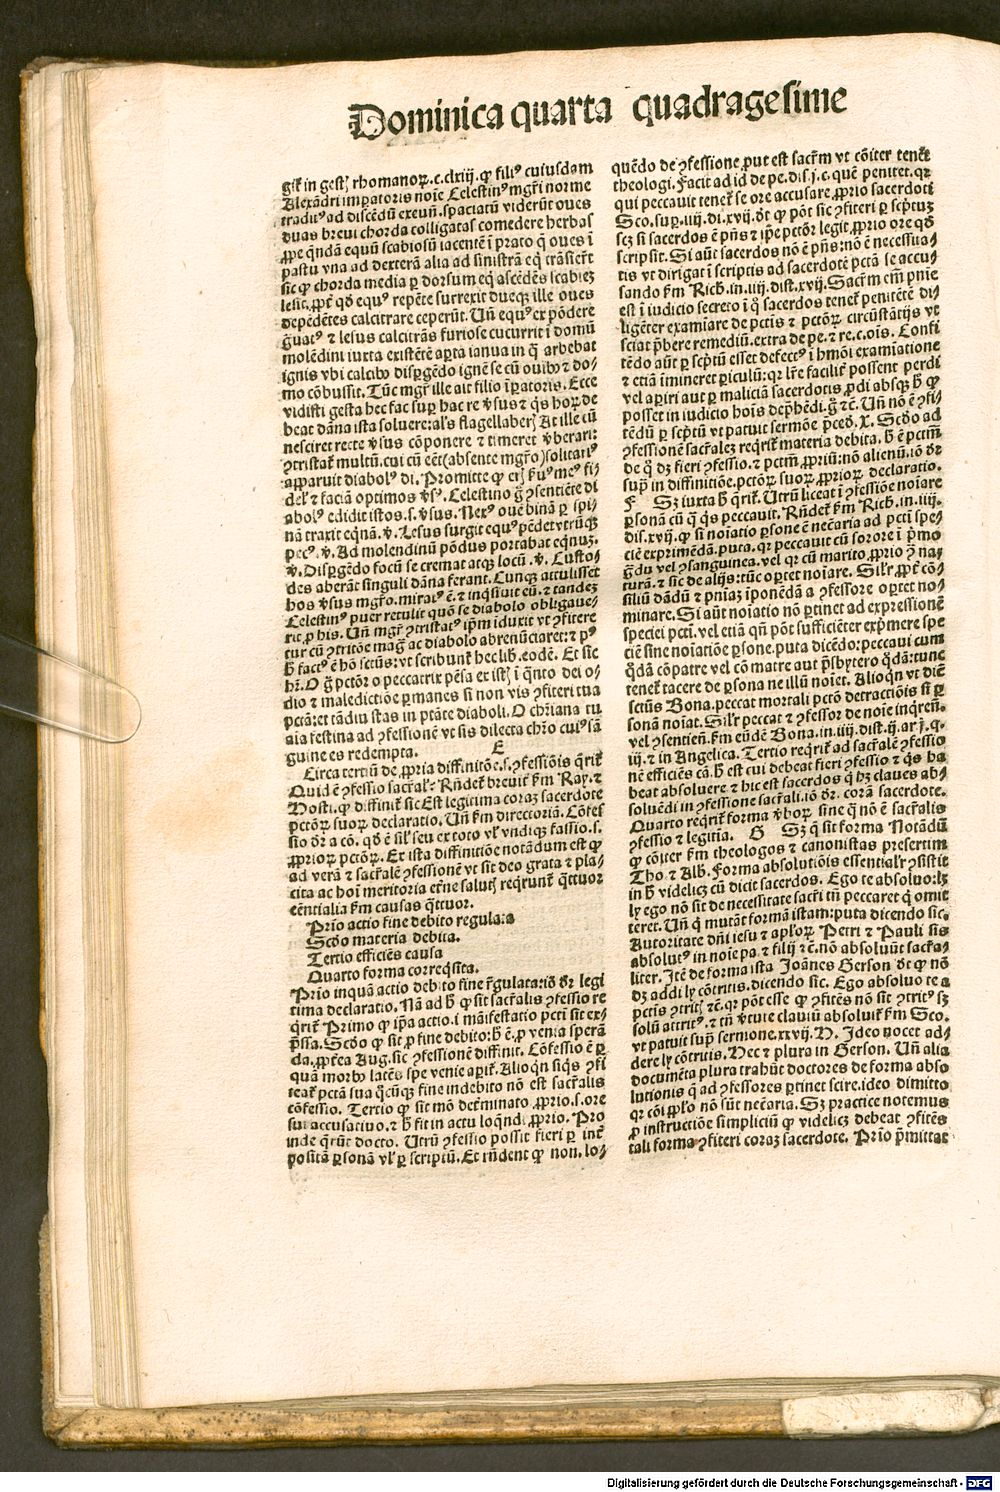 Dominica quarta quadragesime
git᷑ in gestꝭ rhomanoꝝ.c.clxiij. ꝙ filiꝰ cuiusdam
Alexãdri imꝑatoris noĩe Celestinꝰ mgr̃i norme
traditꝰ ad discẽdũ exeuñ. spaciatũ viderũt oues
duas breui chorda colligatas comedere herbas
ꝓpe qñdã equũ scabiosũ iacentẽ ĩ prato q̃ oues ĩ
pastu vna ad dexterã alia ad sinistrã eq̃ trãsier̃t
sic ꝙ chorda media ꝑ dorsum eq̃ ascẽdẽs scabieʒ
lesit. ꝓpt̃ qð equꝰ repẽte surrexit duesqʒ ille oues
depẽdẽtes calcitrare ceperũt. Uñ equꝰ ex põdere
g̃uatꝰ ⁊ lesus calcitrãs furiose cucurrit ĩ domũ
molẽdini iuxta existẽtẽ aꝑta ianua in q̃ arbebat
ignis vbi calcibꝰ disꝑgẽdo ignẽ se cũ ouibꝰ ⁊ do-
mo cõbussit. Tũc mgr̃ ille ait filio ĩꝑatoris. Ecce
vidisti gesta hec fac suꝑ hac re v̾sus ⁊ q̃s hoꝝ de
beat dãna ista soluere: al̃s flagellaberꝭ At ille cũ
nesciret recte v̾sus cõponere ⁊ timeret v̾berari:
ꝯtristat᷑ multũ. cui cũ eẽt (absente mgr̃o) solitariꝰ
apparuit diabolꝰ di. Promitte ꝙ erꝭ s̾uꝰ meꝰ fi-
delꝭ ⁊ faciã optimos v̾sꝰ. Celestino g̊ ꝯsentiẽte di
abolꝰ edidit istos .s. v̾sus. Nexꝰ oue bina ꝑ spi-
nã traxit eqnã. v̾. Lesus surgit equꝰ pẽdet vtrũqʒ
pecꝰ. v̾. Ad molendinũ põdus portabat eqnuʒ.
v̾. Disꝑgẽdo focũ se cremat atqʒ locũ. v̾. Custo-
des aberãt singuli dãna ferant. Cunqʒ attulisset
hos v̾sus mgr̃o. miratꝰ ẽ. ⁊ inqsiuit eũ. ⁊ tandeʒ
Celestinꝰ puer retulit quõ se diabolo obligaue-
rit ꝓ his. Uñ mgr̃ ꝯtristatꝰ ip̃m iduxit vt ꝯfitere
tur cũ ꝯtritõe mag̃ ac diabolo abrenũciaret: ⁊ pꝰ
h̾ factꝰ ẽ hõ sctũs: vt scribunt᷑ hec lib̾. eodẽ. Et sic
hr̃. O g̊ pctõr o peccatrix pẽsa ex istꝭ ĩ qnto dei o-
dio ⁊ maledictiõe ꝑmanes si non vis ꝯfiteri tua
pctã: et tãdiu stas in ptãte diaboli. O chr̃iana tu
aia festina ad ꝯfessionẽ vt sis dilecta chr̃o cuiꝰ sã
guine es redempta. E
Circa tertiũ de ꝓpria diffinitõe .s. ꝯfessiõis q̃rit᷑
Quid ẽ ꝯfessio sacr̃al? Rñdet᷑ breuit᷑ s̃m Ray. ⁊
Hosti. ꝙ diffinit᷑ sic Est legitima coraʒ sacerdote
pctõꝝ suoꝝ declaratio. Uñ s̃m directoriã. Cõfes
sio dr̃ a cõ. qð ẽ sil̃ seu ex toto vl̾ vndiqʒ fassio .s.
ꝓprioꝝ pctõꝝ. Ex ista diffinitiõe notãdum est ꝙ
ad verã ⁊ sacr̃alẽ ꝯfessionẽ vt sit deo grata ⁊ pla-
cita ac hoĩ meritoria et̾ne salutꝭ reqrunt᷑ q̃ttuor
eẽntialia s̃m causas q̃ttuor.
Prĩo actio fine debito regulata
Scðo materia debita.
Tertio efficiẽs causa
Quarto forma correqsita.
Prĩo inquã actio debito fine r̃gulata: iõ dr̃ legi
tima declaratio. Nã ad h̾ ꝙ sit sacr̃alis ꝯfessio re
q̃rit᷑ Primo ꝙ ip̃a actio .i. mãifestatio pctĩ sit ex-
p̃ssa. Scðo ꝙ sit ꝓ fine debito: h̾ ẽ. ꝓ venia sperã
da. ꝓpt̾ea Aug. sic ꝯfessionẽ diffinit. Cõfessio ẽ ꝑ
quã morbꝰ latẽs spe venie aꝑit᷑. Alioqn siq̃s ꝯfi
teat᷑ pctã sua q̃cũqʒ fine indebito nõ est sacr̃alis
cõfessio. Tertio ꝙ sit mõ det̾minato ꝓprio .s. ore
sui accusatiuo. ⁊ h̾ fit in actu loq̃ndi ꝓprio. Pro
inde q̃rũt docto. Utrũ ꝯfessio possit fieri ꝑ int̾
positã ꝑsonã vl̾ ꝑ scriptũ. Et rñdent ꝙ non. lo-
quẽdo de ꝯfessione ꝓut est sacr̃m vt cõiter tenẽt
theologi. Facit ad id de pe. dis. j. c. quẽ penitet. qꝛ
qui peccauit tenet᷑ se ore accusare ꝓprio sacerdoti
Sco. suꝑ .iiij. di. xvij. dt̾ ꝙ põt sic ꝯfiteri ꝑ scꝑtuʒ
scʒ si sacerdos ẽ p̃ñs ⁊ ip̃e pctõr legit ꝓprio ore qð
scripsit. Si aũt sacerdos nõ ẽ p̃ñs: nõ ẽ necessita-
tis vt dirigat ĩ scriptis ad sacerdotẽ pctã se accu-
sando s̃m Rich. in .iiij. dist. xvij. Sacr̃m em̃ pñie
est ĩ iudicio secreto ĩ q̊ sacerdos tenet᷑ penitẽtẽ di-
ligẽter examĩare de pctĩs ⁊ pctõꝝ circũstãtijs vt
sciat p̃bere remediũ. extra de pe. ⁊ re. c. oĩs. Confi
tẽdo aũt ꝑ scp̃tũ esset defectꝰ ĩ hmõi examĩatione
⁊ etiã imineret ꝑiculũ: qꝛ lr̃e facilit᷑ possent perdi
vel aꝑiri aut ꝑ maliciã sacerdotis ꝓdi absqʒ h̾ ꝙ
posset in iudicio hoĩs dep̃hẽdi. g̊ ⁊c̃. Uñ nõ ẽ ꝯfi-
tẽdũ ꝑ scp̃tũ vt patuit sermõe p̃ceð. X. Scðo ad
ꝯfessionẽ sacr̃aleʒ reqrit᷑ materia debita. h̾ ẽ pctm̃
de q̊ dʒ fieri ꝯfessio. ⁊ pctm̃ ꝓpriũ: nõ alienũ. iõ dr̃
sup̃ in diffinitiõe. pctõꝝ suoꝝ ꝓprioꝝ declaratio.
F Sʒ iuxta h̾ q̃rit᷑. Utrũ liceat ĩ ꝯfessiõe noĩare
ꝑsonã cũ q̃ q̃s peccauit. Rñdet᷑ s̃m Rich. in .iiij.
dis. xvij. ꝙ si noĩatio ꝑsone ẽ necẽaria ad pctĩ spe-
ciẽ exprimẽdã. puta. qꝛ peccauit cũ sorore ĩ p̾mo
g̃du vel ꝯsanguinea. vel qꝛ cũ marito ꝓprio ꝯ na-
turã. ⁊ sic de alijs: tũc oꝑtet noĩare. Sil̃r ꝓpt̾ cõ-
siliũ dãdũ ⁊ pniaʒ ĩponẽdã a ꝯfessore oꝑtet no-
minare. Si aũt noĩatio nõ ꝑtinet ad expressionẽ
speciei pctĩ. vel etiã qñ põt sufficiẽter expr̃mere spe
ciẽ sine noĩatiõe ꝑsone. puta dicẽdo: peccaui cum
q̃dã cõpatre vel cõ matre aut p̃sbytero q̊dã: tunc
tenet᷑ tacere de ꝑsona ne illũ noĩet. Alioqn vt dic̃
sctũs Bona. peccat mortali pctõ detractiõis si ꝑ
sonã noĩat. Sil̃r peccat ⁊ ꝯfessor de noĩe inqreñ.
vel ꝯsentieñ. s̃m eũdẽ Bona. in .iiij. dist. ij. ar. j. q.
iij. ⁊ in Angelica. Tertio reqrit᷑ ad sacr̃alẽ ꝯfessio
nẽ efficiẽs cã. h̾ est cui debeat fieri ꝯfessio ⁊ q̃s ha
beat absoluere ⁊ hic est sacerdos q̃ hʒ claues ab-
soluẽdi in ꝯfessione sacr̃ali. iõ dr̃. corã sacerdote.
Quarto reqrit᷑ forma v̾boꝝ sine q̃ nõ ẽ sacr̃alis
ꝯfessio ⁊ legitĩa. G Sʒ q̃ sit forma Notãdũ
ꝙ cõiter s̃m theologos ⁊ canonistas presertim
Tho. ⁊ Alb. Forma absolutiõis essential̃r ꝯsistit
in h̾ videlicʒ cũ dicit sacerdos. Ego te absoluo: lʒ
ly ego nõ sit de necessitate sacr̃i tñ peccaret q̃ omit
teret. Uñ q̃ mutãt formã istam: puta dicendo sic.
Autoritate dñi iesu ⁊ apl̃oꝝ Petri ⁊ Pauli sis
absolutꝰ in noĩe pa. ⁊ filij ⁊c̃. nõ absoluũt sacr̃a-
liter. Itẽ de forma ista Joãnes Gerson dt̾ ꝙ nõ
dʒ addi ly cõtritis. dicendo sic. Ego absoluo te a
pctĩs ꝯtritꝭ ⁊c̃. qꝛ põt esse ꝙ ꝯfitẽs nõ sit ꝯtritꝰ sʒ
solũ attritꝰ. ⁊ tñ v̾tute clauiũ absoluit᷑ s̃m Sco.
vt patuit sup̃ sermone .xxvij. N. Ideo nocet ad-
dere ly cõtritis. Hec ⁊ plura in Gerson. Uñ alia
documẽta plura trahũt doctores de forma abso
lutionis q̃ ad ꝯfessores ꝑtinet scire. ideo dimitto
qꝛ cõi ppl̃o nõ sũt necẽaria. Sʒ practice notemus
ꝓ instructiõe simpliciũ ꝙ videlicʒ debeat ꝯfitẽs
tali forma ꝯfiteri coraʒ sacerdote. Prĩo p̃mittat
Digitalisierung gefördert durch die Deutsche Forschungsgemeinschaft - DFG